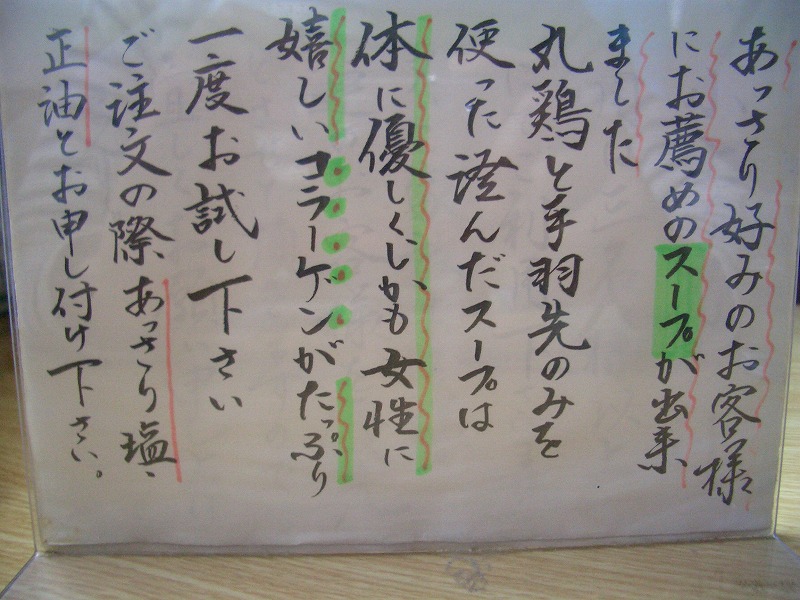 あっさり好みのお客様
にお薦めのスープが出来
ました
丸鶏と手羽先のみを
使った澄んだスープは
体に優しくしかも女性に
嬉しいコラーゲンがたっぷり
一度お試し下さい
ご注文の際あっさり塩、
正油とお申し付け下さい。